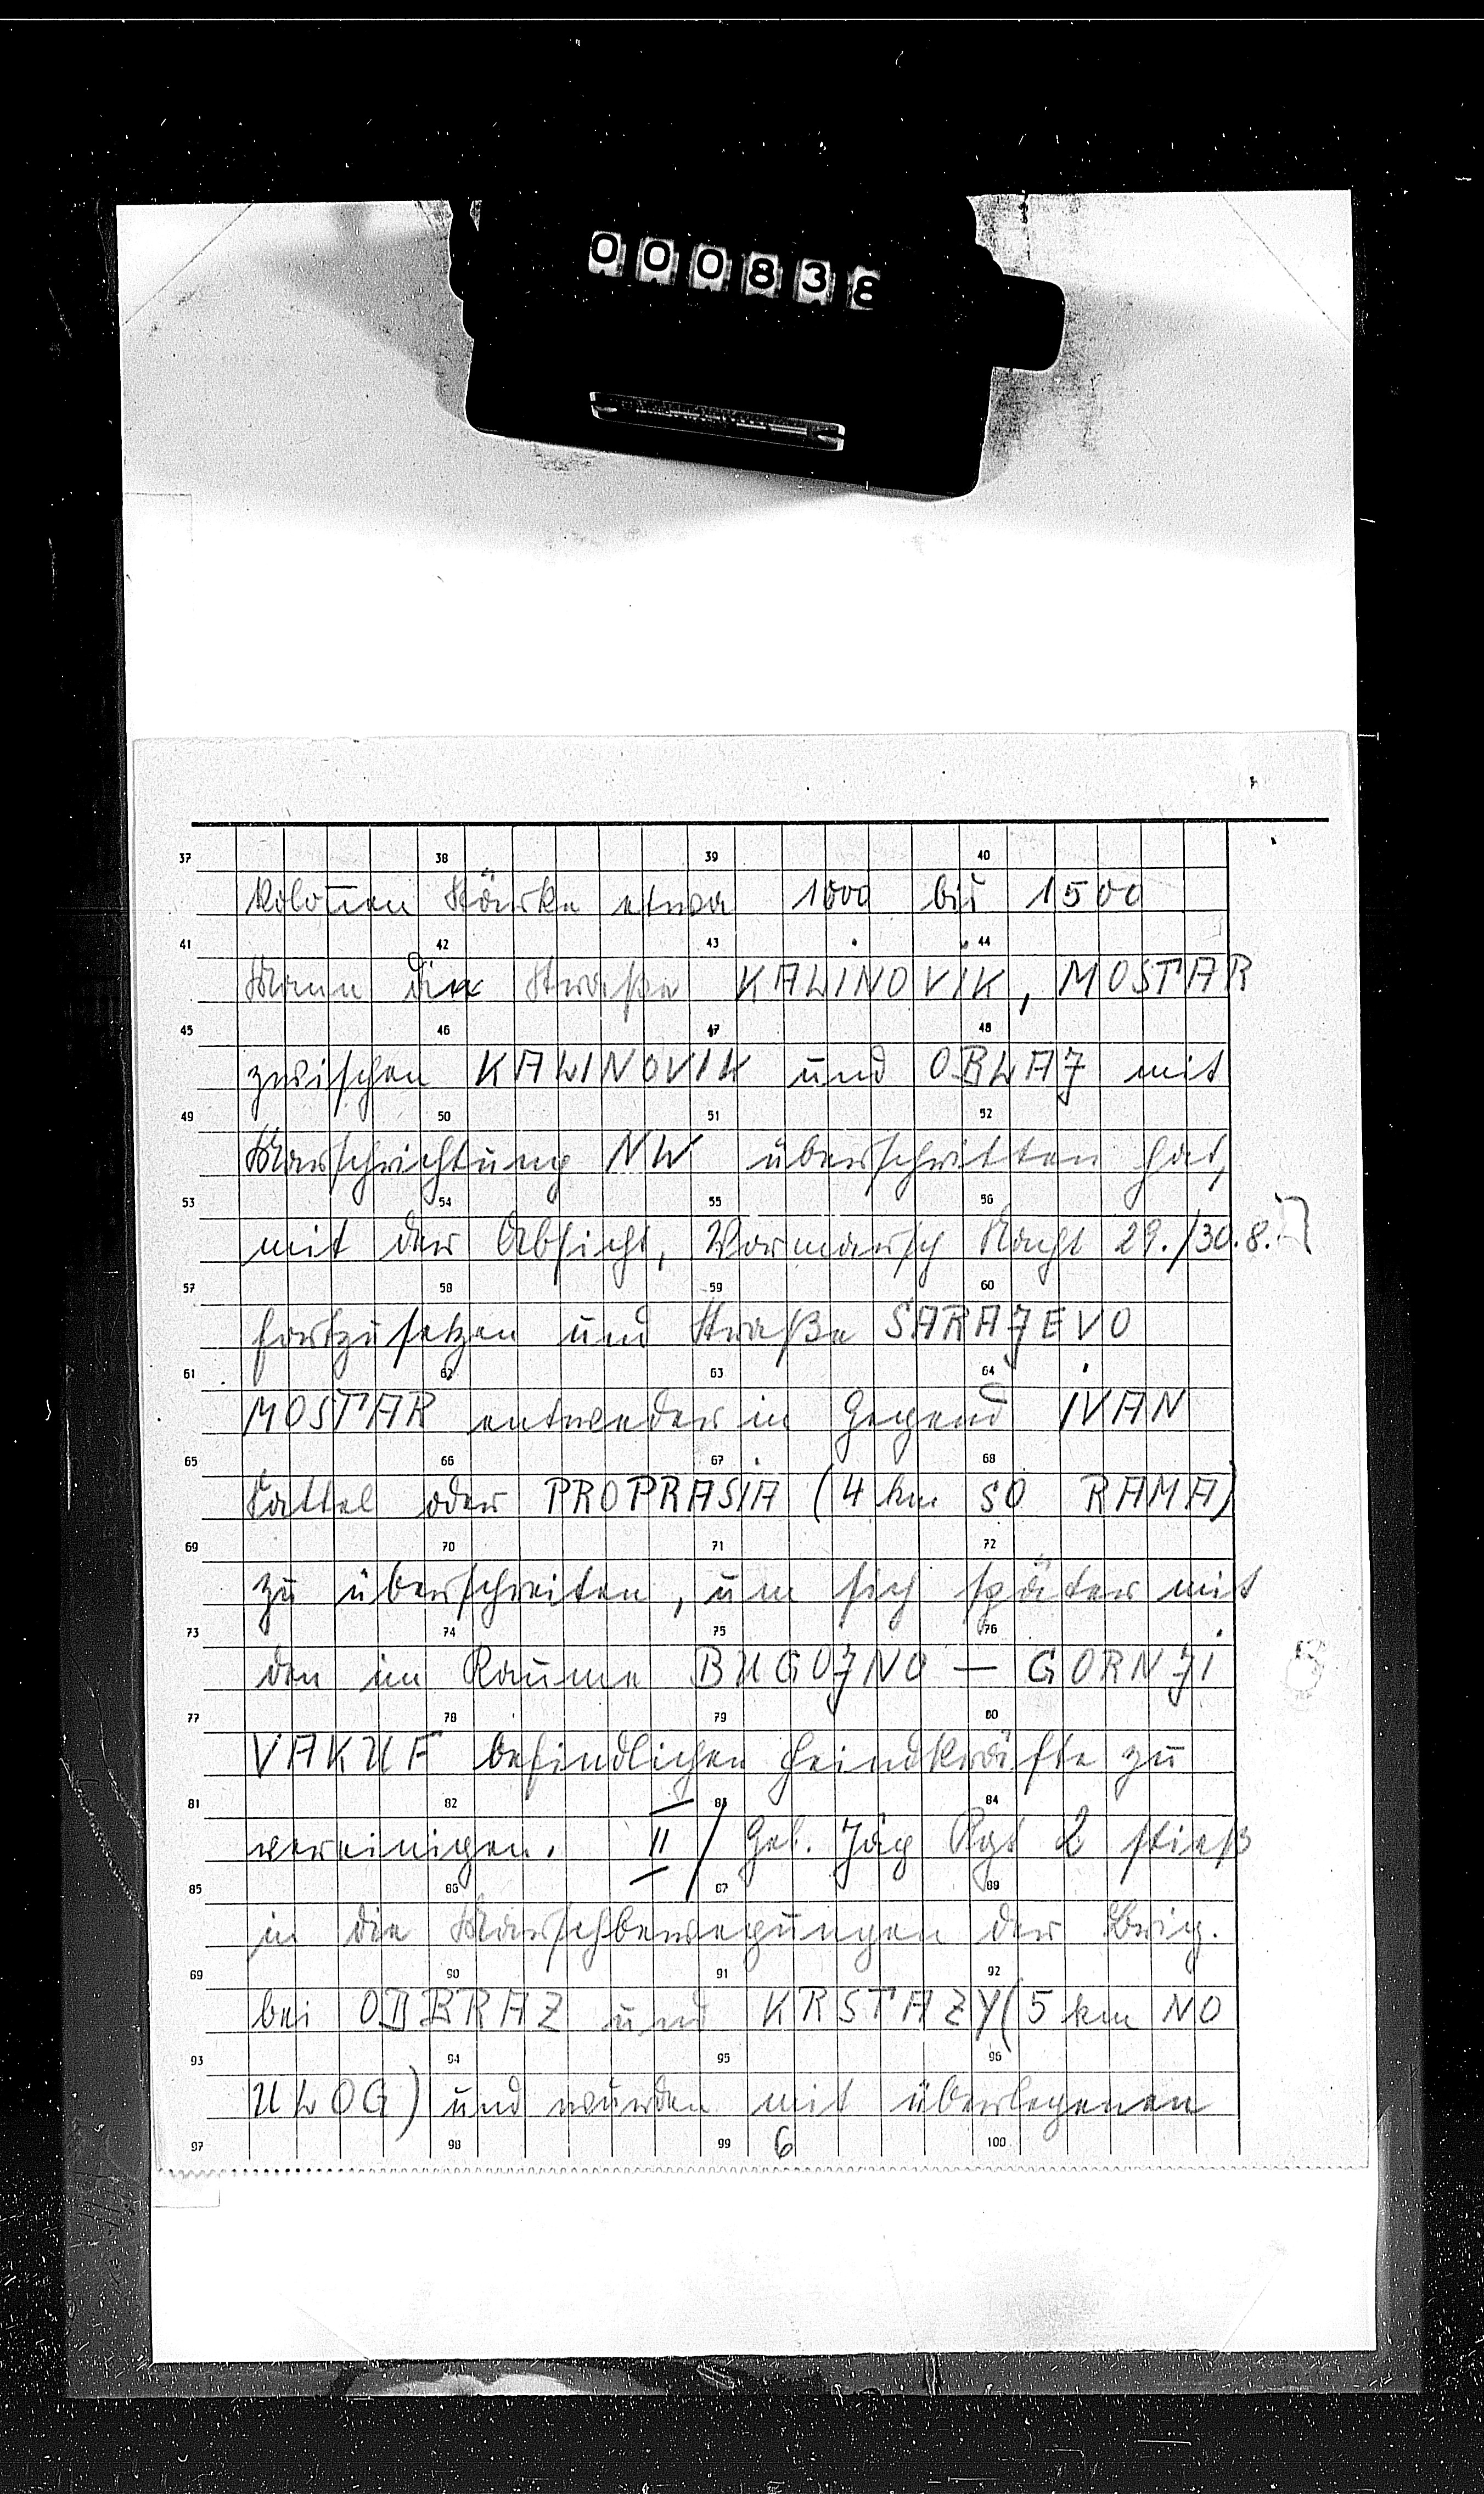 000838
37 38 39 40
Kolonnen Stärke etwa 1000 bis 1500
41 42 43 44
Mann die Straße KALINOVIK, MOSTAR
45 46 47 48
zwischen KALINOVIK und OBLAJ mit
49 50 51 52
Marschrichtung NW überschritten hat,
53 54 55 56
mit der Absicht, Vormarsch Nacht 29./30.8.
57 58 59 60
fortzusetzen und Straße SARAJEVO
61 62 63 64
MOSTAR entweder in Gegend IVAN
65 66 67 68
Sattel oder PROPRASIA (4 km SO RAMA)
69 70 71 72
zu überschreiten, um sich später mit
73 74 75 76
den im Raume BUGOJNO — GORNJI
77 78 79 80
VAKUF befindlichen Feindkräfte zu
81 82 83 84
vereinigen. II / Geb. Jäg Rgt 2 stieß
85 86 87 88
in die Marschbewegungen der Brig.
89 90 91 92
bei OBRAZ und KRSTAZY (5 km NO
93 94 95 96
ULOG) und wurden mit überlegenen
97 98 99 6 100